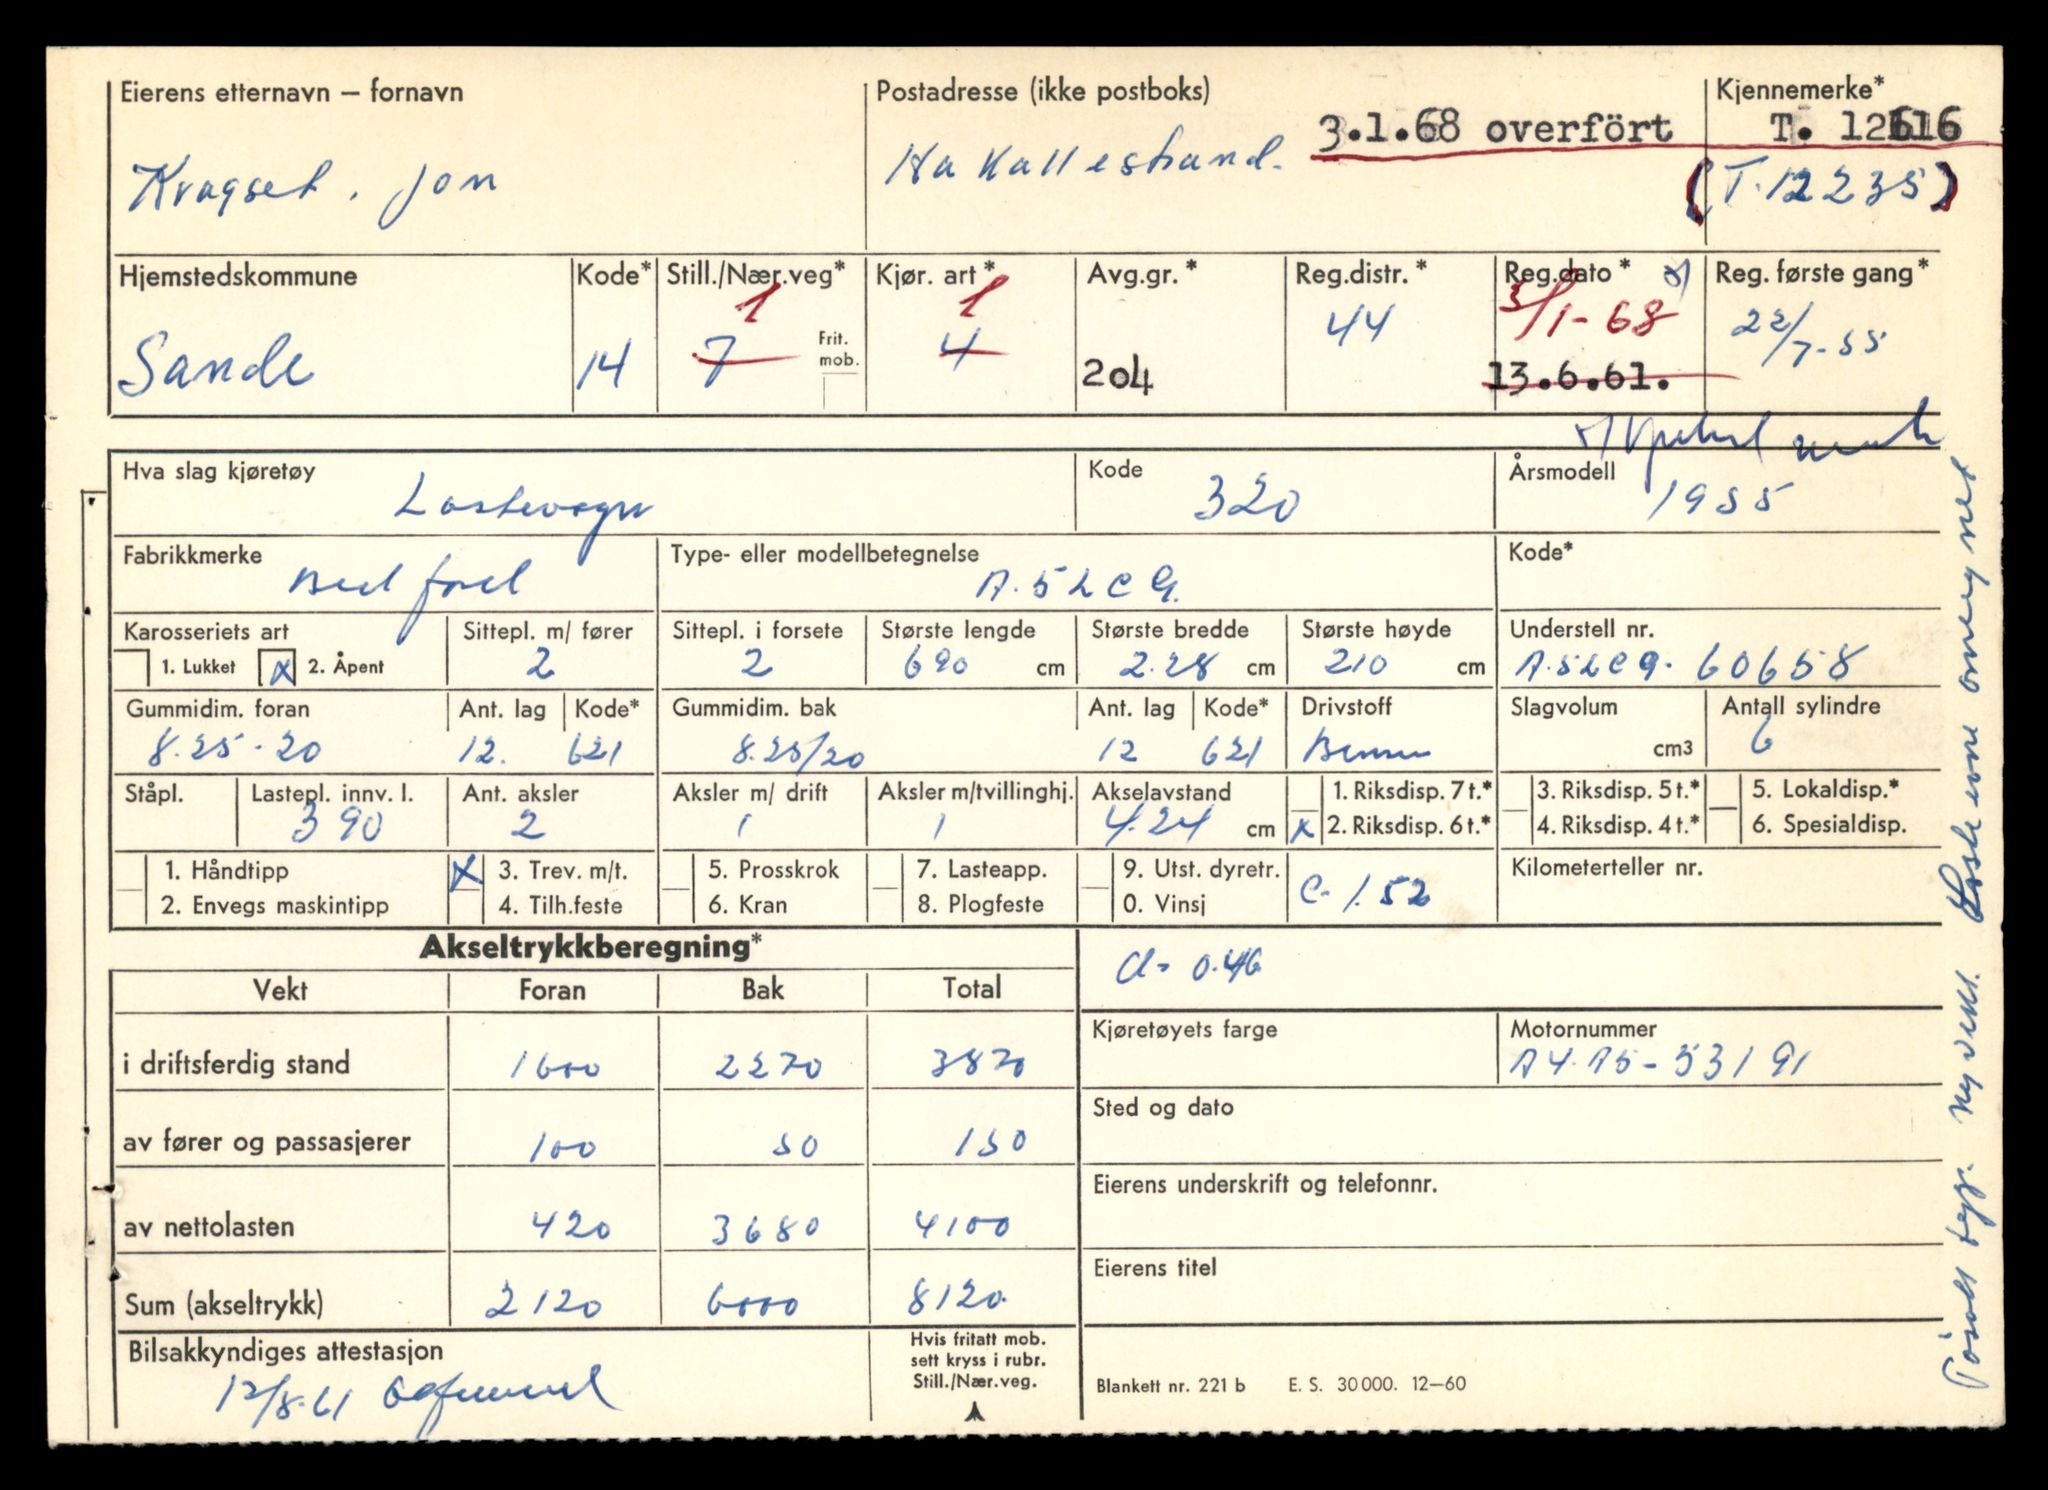 Eierens etternavn – fornavn
Kragset, Jon
Postadresse (ikke postboks)
Hakallestrand.
3.1.68 overfört
Kjennemerke*
T. 12616
(T-12235)
Hjemstedskommune
Sande
Kode*
14
Still./Nær.veg*
1
7
Frit. mob.
Kjør. art*
1
4
Avg.gr.*
204
Reg.distr.*
44
Reg.dato*
3/1-68
13.6.61.
Reg. første gang*
22/7-55
Hva slag kjøretøy
Lastevogn
Kode
320
Årsmodell
1955
Fabrikkmerke
Bedford
Type- eller modellbetegnelse
A.5LCG.
Kode*
Karosseriets art
1. Lukket x 2. Åpent
Sittepl. m/ fører
2
Sittepl. i forsete
2
Største lengde
690 cm
Største bredde
2.28 cm
Største høyde
210 cm
Understell nr.
A.5LCG. 60658
Gummidim. foran
8.25-20
Ant. lag
12.
Kode*
621
Gummidim. bak
8.25/20
Ant. lag
12
Kode*
621
Drivstoff
Bensin
Slagvolum
cm3
Antall sylindre
6
Ståpl.
Lastepl. innv. l.
390
Ant. aksler
2
Aksler m/ drift
1
Aksler m/tvillinghj.
1
Akselavstand
4.24 cm
1. Riksdisp. 7 t.*
x 2. Riksdisp. 6 t.*
3. Riksdisp. 5 t.*
4. Riksdisp. 4 t.*
5. Lokaldisp.*
6. Spesialdisp.
1. Håndtipp
2. Envegs maskintipp
x 3. Trev. m/t.
4. Tilh.feste
5. Prosskrok
6. Kran
7. Lasteapp.
8. Plogfeste
9. Utst. dyretr.
0. Vinsj
C- 1.52
Kilometerteller nr.
Akseltrykkberegning*
d= 0.46
Vekt Foran Bak Total
i driftsferdig stand 1600 2270 3870
av fører og passasjerer 100 50 150
av nettolasten 420 3680 4100
Sum (akseltrykk) 2120 6000 8120
Kjøretøyets farge
Motornummer
A4.A5-53191
Sted og dato
Eierens underskrift og telefonnr.
Eierens titel
Bilsakkyndiges attestasjon
12/8-61
Hvis fritatt mob.
sett kryss i rubr.
Still./Nær.veg.
Blankett nr. 221 b E. S. 30 000. 12–60
ny vekt.